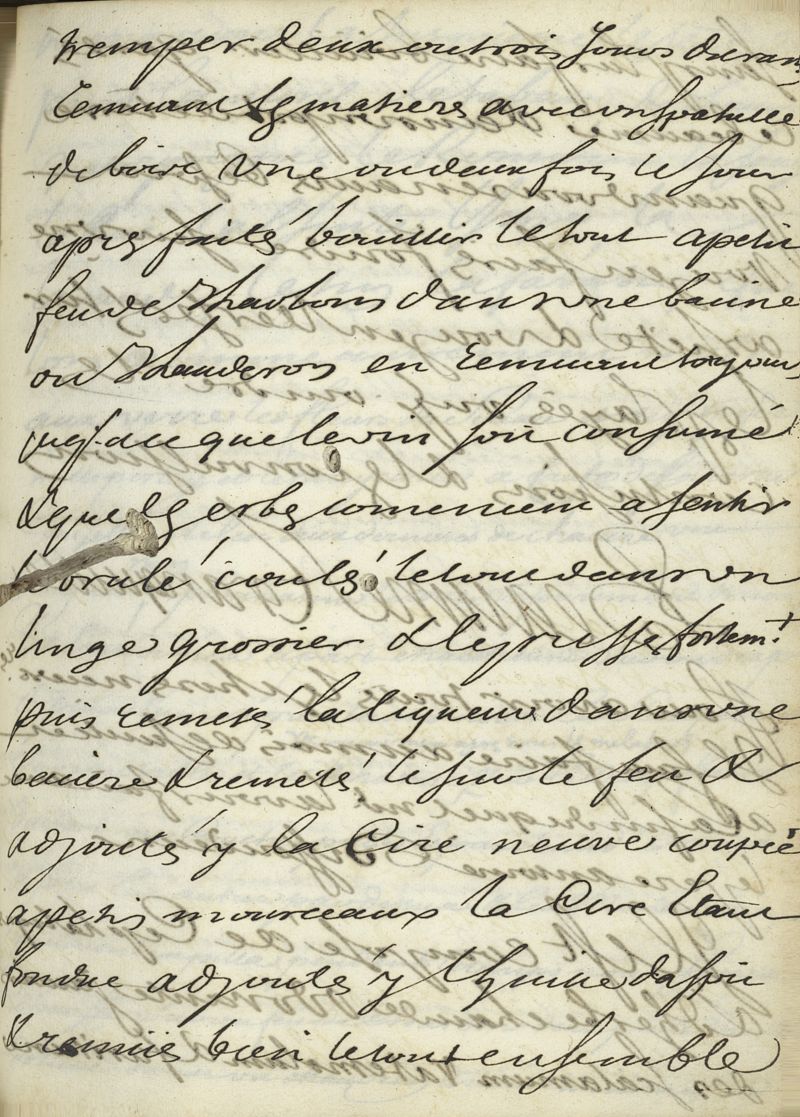 tremper deux ou trois Jours durant
remuant les matieres avec un spatulle
de bois une ou deux fois le Jour
apres faités bouillir le tout a petit
feu de Charbons dans une bacine
ou Chauderon en remuant toujours
jusq'ace que le vin soit consumé
& que les erbes comencent a sentir
le brulé coulés le tout dans un
linge grossier & le presses fortemt
puis remetés la liqueur dans une
baciere & remetés le sur le feu &
adjoutés y la Cire neuve coupée
a petis mourceaux la Cire Etant
fondue adjoutés y lhuille daspic
& remués bien le tout ensemble